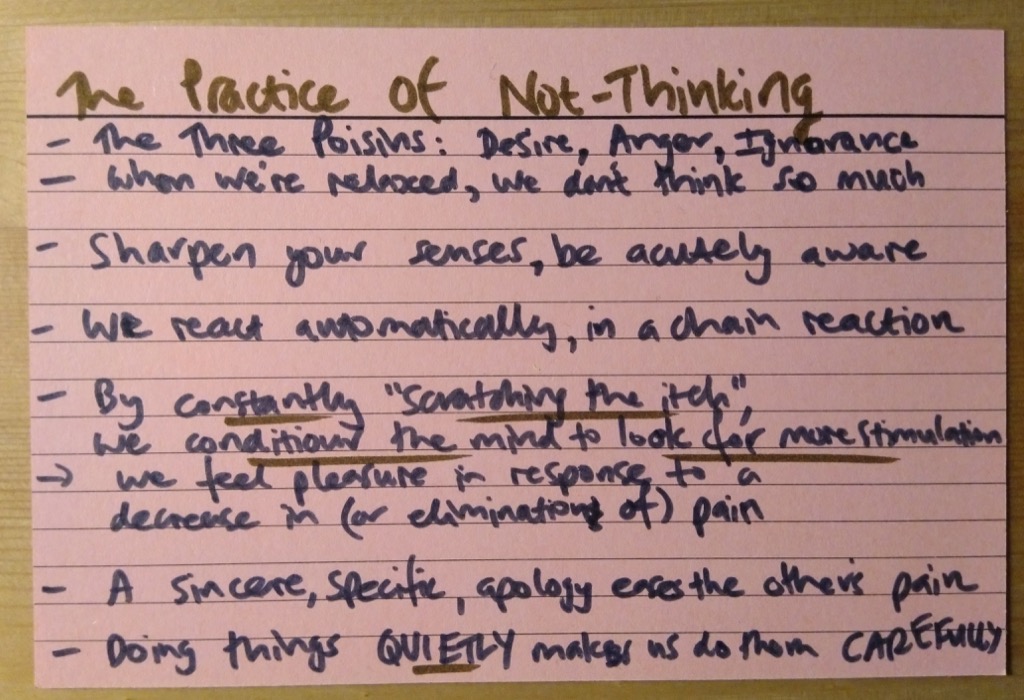 The Practice of Not-Thinking
- The Three Poisins: Desire, Anger, Ignorance
- When we're relaxed, we don't think so much
- Sharpen your senses, be acutely aware
- We react automatically, in a chain reaction
- By constantly "scratching the itch",
we condition the mind to look for more stimulation
→ we feel pleasure in response to a
decrease in (or elimination of) pain
- A sincere, specific, apology eases the other's pain
- Doing things QUIETLY makes us do them CAREFULLY